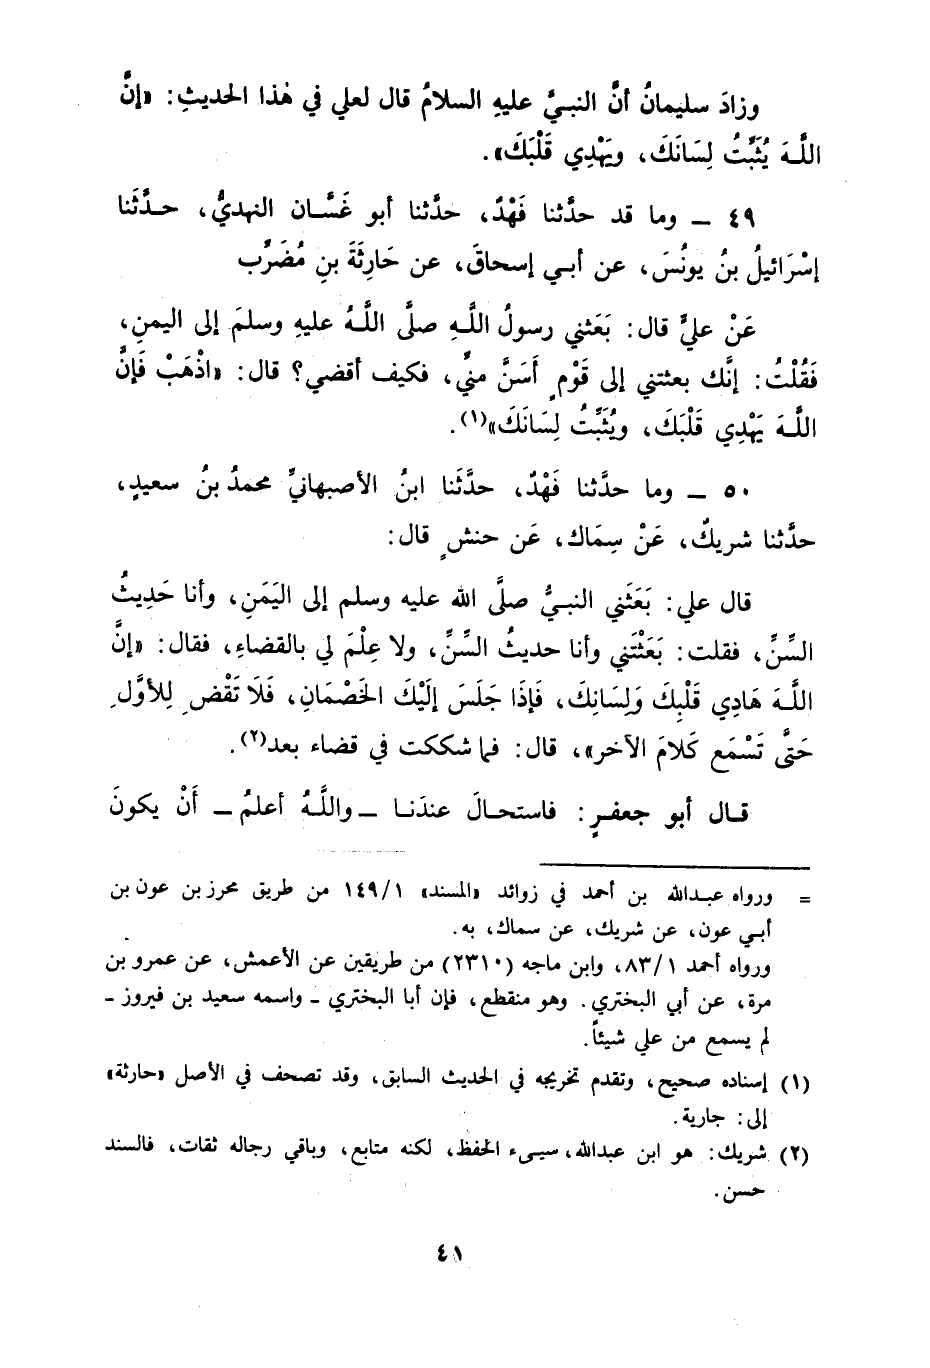 وزادَ سليمانُ أنَّ النبيَّ عليهِ السلامُ قال لعلي في هٰذا الحديثِ: «إنَّ
اللَّهَ يُثَبِّتُ لِسَانَكَ، ويَهْدِي قَلْبَكَ».
٤٩ ــ وما قد حدَّثنا فَهْدٌ، حدَّثنا أبو غَسَّان النهديُّ، حدَّثَنا
إسْرَائيلُ بنُ يونُسَ، عن أبي إسحاقَ، عن حَارِثَةَ بنِ مُضَرِّب
عَنْ عليٍّ قال: بَعَثني رسولُ اللَّهِ صلَّى اللَّهُ عليهِ وسلمَ إلى اليمنِ،
فَقُلْتُ: إنَّك بعثتني إلى قَوْمٍ أَسَنَّ منِّي، فكيف أقضي؟ قال: «اذْهَبْ فَإنَّ
اللَّهَ يَهْدِي قَلْبَكَ، ويُثَبِّتُ لِسَانَكَ»(١).
٥٠ ــ وما حدَّثنا فَهْدٌ، حدَّثَنا ابنُ الأصبهانيِّ محمدُ بنُ سعيدٍ،
حدَّثنا شريكٌ، عَنْ سِمَاك، عَن حنشٍ قال:
قال علي: بَعَثَني النبيُّ صلَّى الله عليه وسلم إلى اليَمَنِ، وأنا حَدِيثُ
السِّنِّ، فقلت: بَعَثْتَني وأنا حديثُ السِّنِّ، ولا عِلْمَ لي بالقضاءِ، فقال: «إنَّ
اللَّهَ هَادِي قَلْبِكَ وَلِسَانِكَ، فَإذَا جَلَسَ إلَيْكَ الخَصْمَانِ، فَلَا تَقْضِ لِلأوَّلِ
حَتَّى تَسْمَع كَلامَ الآخر»، قال: فما شككت في قضاء بعد(٢).
قال أبو جعفرٍ: فاستحالَ عندَنا ــ واللَّهُ أعلمُ ــ أَنْ يكونَ
= ورواه عبدالله بن أحمد في زوائد «المسند» ١٤٩/١ من طريق محرز بن عون بن
أبي عون، عن شريك، عن سماك، به.
ورواه أحمد ٨٣/١، وابن ماجه (٢٣١٠) من طريقين عن الأعمش، عن عمرو بن
مرة، عن أبي البختري. وهو منقطع، فإن أبا البختري ـ واسمه سعيد بن فيروز ـ
لم يسمع من علي شيئاً.
(١) إسناده صحيح، وتقدم تخريجه في الحديث السابق، وقد تصحف في الأصل «حارثة»
إلى: جارية.
(٢) شريك: هو ابن عبدالله، سيىء الحفظ، لكنه متابع، وباقي رجاله ثقات، فالسند
حسن.
٤١